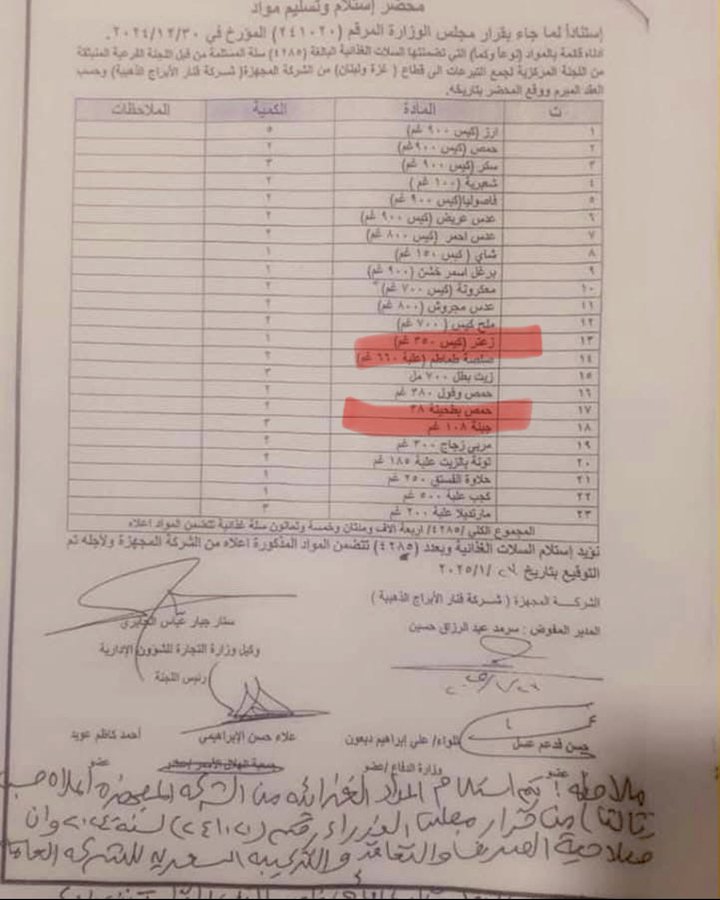 محضر إستلام وتسليم مواد
إستناداً لما جاء بقرار مجلس الوزارة المرقم (٢٤١٠٢٠) المؤرخ في ٢٠٢٤/١٢/٣٠
ادناه قائمة بالمواد (نوعاً وكما) التي تضمنتها السلات الغذائية البالغة (٤٢٨٥) سلة المستلمة من قبل اللجنة الفرعية المنبثقة
من اللجنة المركزية لجمع التبرعات الى قطاع ( غزة ولبنان) من الشركة المجهزة( شركة فنار الأبراج الذهبية) وحسب
العقد المبرم ووقع المحضر بتاريخه.
ت المادة الكمية الملاحظات
١ ارز (كيس ٩٠٠ غم) ٥
٢ حمص (كيس ٩٠٠غم) ٢
٣ سكر (كيس ٩٠٠ غم) ٣
٤ شعرية (١٠٠ غم ) ٢
٥ فاصوليا(كيس ٩٠٠ غم) ٢
٦ عدس عريض (كيس ٩٠٠ غم) ٢
٧ عدس احمر (كيس ٨٠٠ غم) ٢
٨ شاي ( كيس ١٥٠ غم) ١
٩ برغل اسمر خشن (٩٠٠ غم) ٢
١٠ معكرونة (كيس ٧٠٠ غم) ٢
١١ عدس مجروش (٨٠٠ غم) ٢
١٢ ملح كيس (٧٠٠ غم)
١٣ زعتر (كيس ٣٥٠ غم) ١
١٤ صلصة طماطم (علبة ٦٦٠ غم) ٢
١٥ زيت بطل ٧٠٠ مل ٣
١٦ حمص وفول ٣٨٠ غم ٢
١٧ حمص بطحينة ٣٨ ٢
١٨ جبنة ١٠٨ غم ٣
١٩ مربى زجاج ٣٠٠ غم ٢
٢٠ تونة بالزيت علبة ١٨٥ غم
٢١ حلاوة الفستق ٢٥٠ غم ١
٢٢ كجب علبة ٥٠٠ غم ١
٢٣ مارتديلا علبة ٢٠٠ غم ٣
المجموع الكلي /٤٢٨٥/ اربعة الاف ومئتان وخمسة وثمانون سلة غذائية تتضمن المواد اعلاه
نؤيد إستلام السلات الغذائية وبعدد (٤٢٨٥) تتضمن المواد المذكورة اعلاه من الشركة المجهزة ولأجله تم
التوقيع بتاريخ ٢٠٢٥/١/
الشركة المجهزة ( شركة فنار الأبراج الذهبية )
المدير المفوض : سرمد عبد الرزاق حسين
ستار جبار عباس الجابري
وكيل وزارة التجارة للشؤون الإدارية
رئيس اللجنة
حسن قدعم عسل
عضو
اللواء/ علي إبراهيم دبعون
وزارة الدفاع /عضو
علاء حسن الإبراهيمي
جمعية الهلال الأحمر
احمد كاظم عويد
عضو
ملاحظة : تم استلام المواد الغذائية من الشركة المجهزة اعلاه حسب
(ثالثا) من قرار مجلس الوزراء رقم (٢٤١٠٢٠) لسنة ٢٠٢٤ وان
صلاحية الصرف والتعاقد و السعرية للشركة العامة